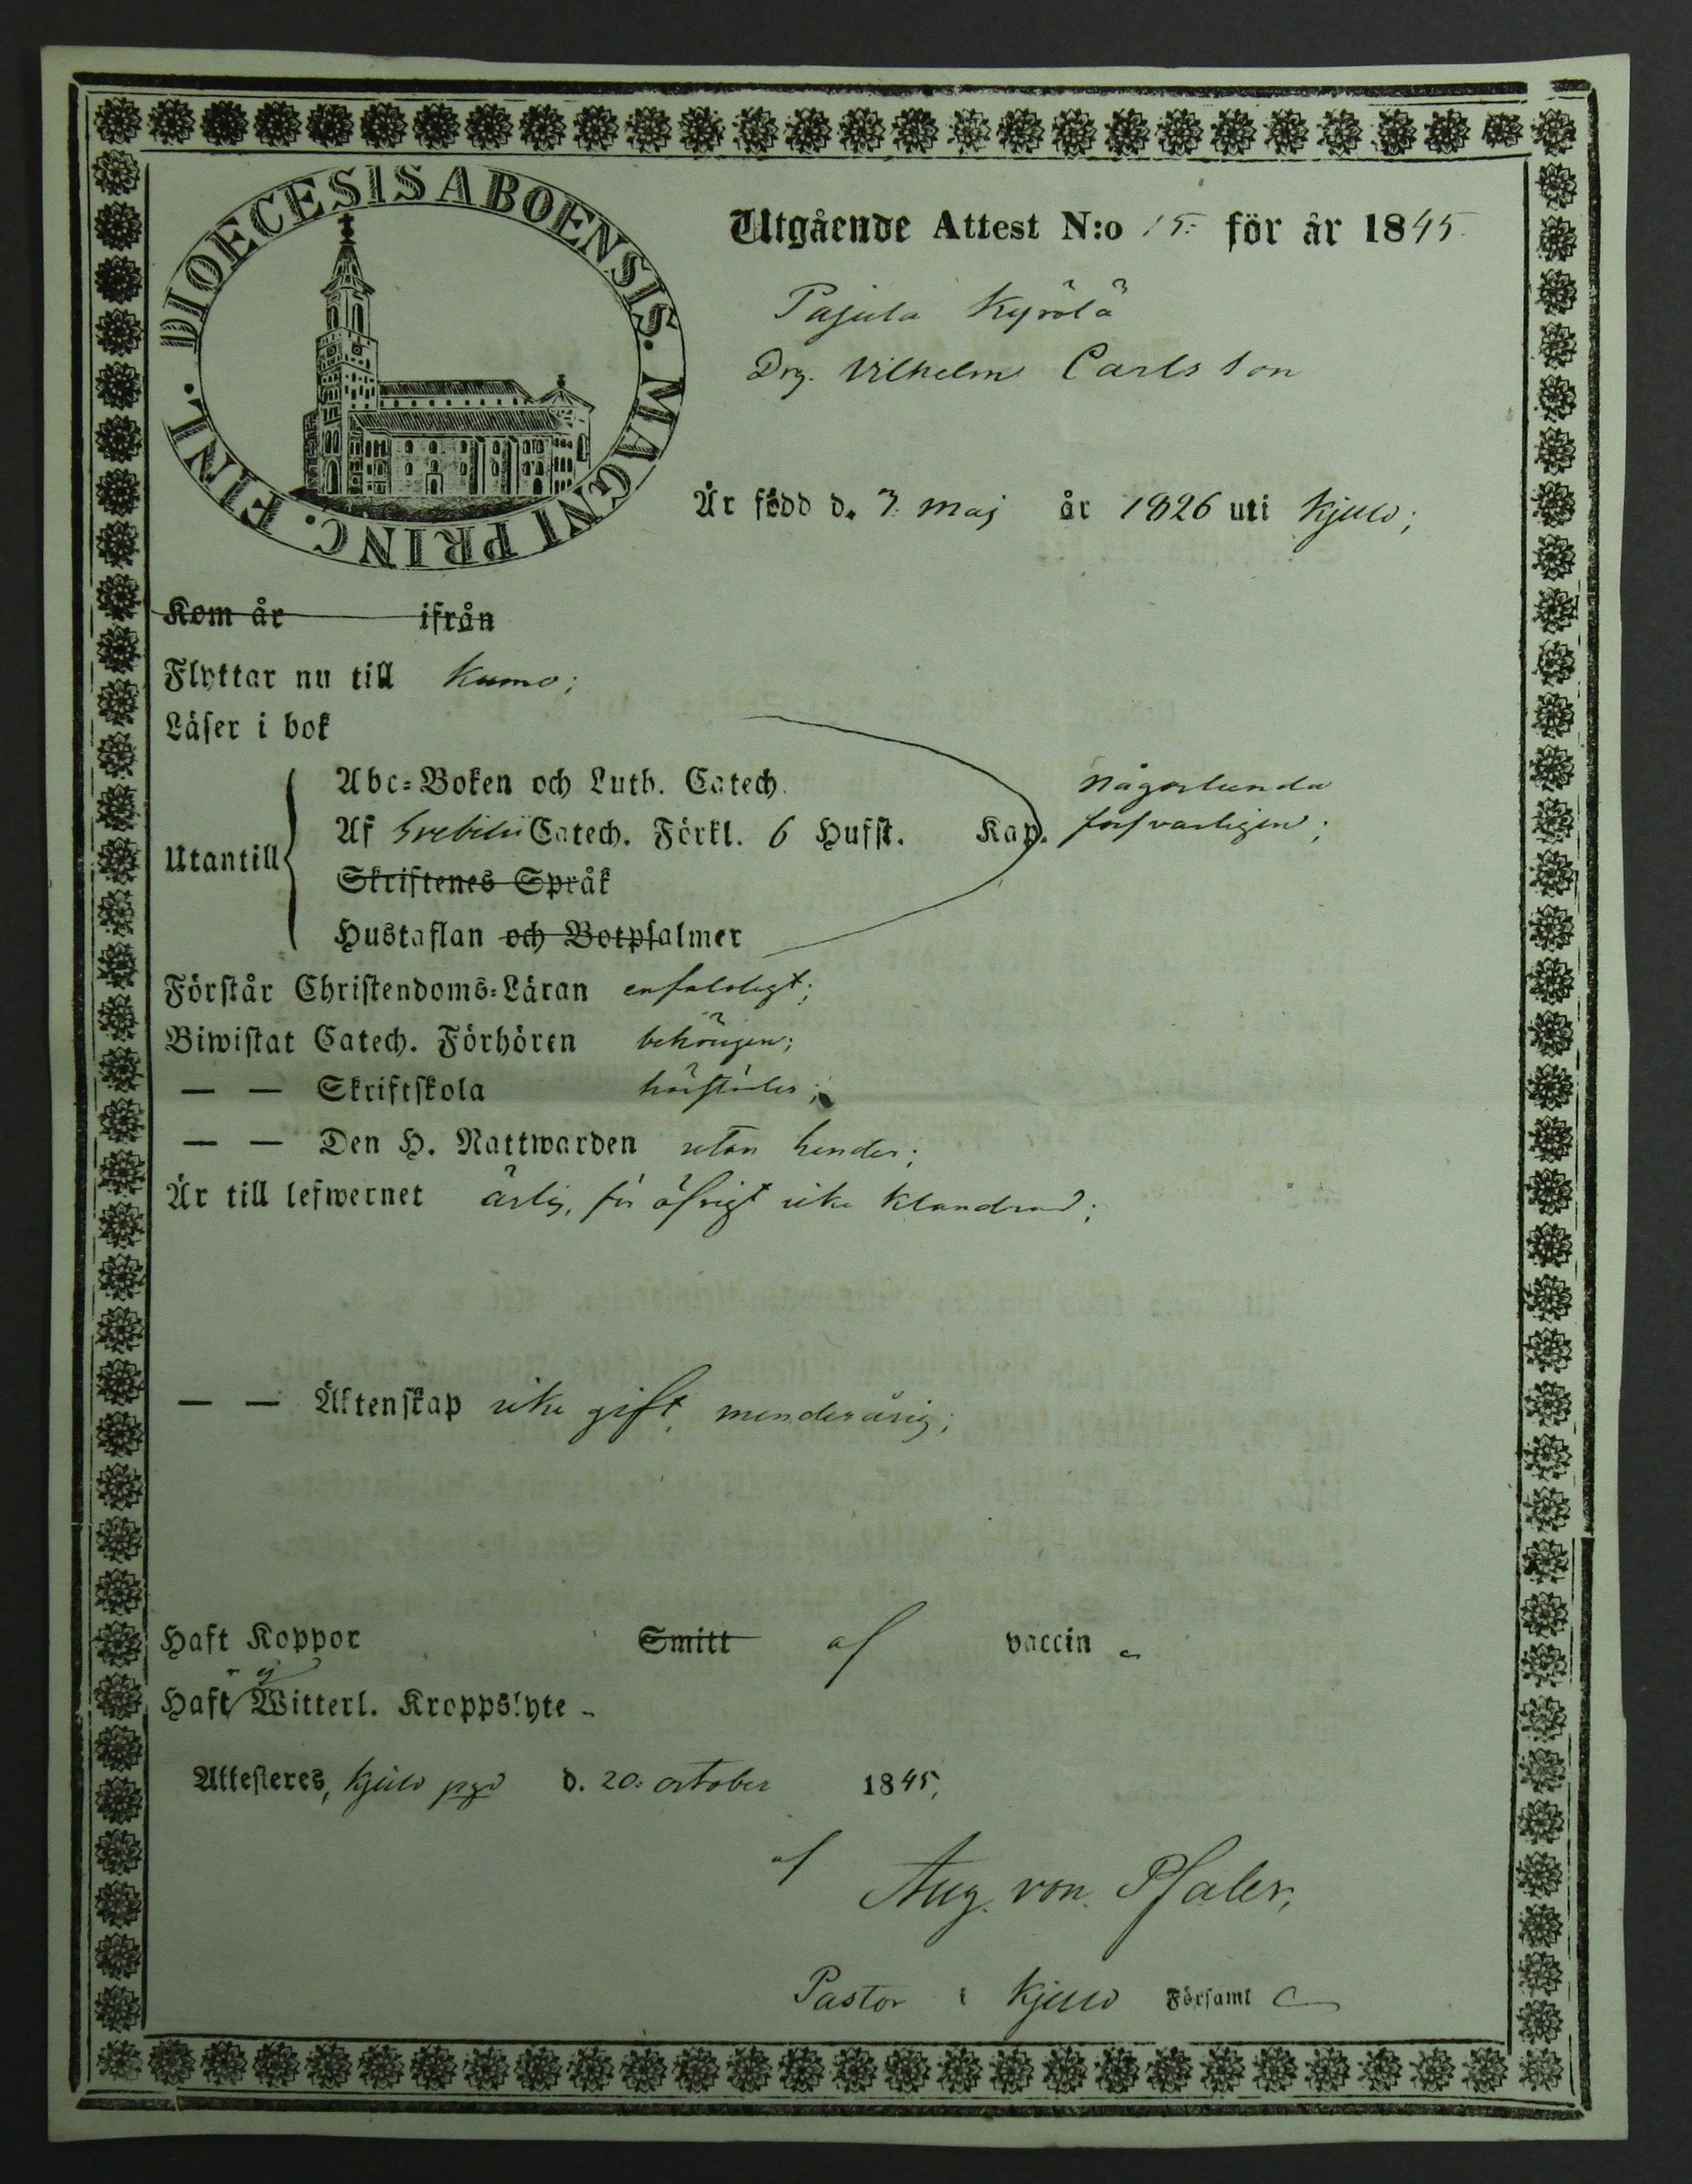 DIOECESIS ABOENSIS. MAGNI PRINC. FINL.
Utgående Attest N:o 15. för år 1845.
Pajula Kyrölä
Drg. Vilhelm Carlsson
Är född d. 3. maj år 1826 uti Kjulo;
Kom år ifrån
Flyttar nu till Kumo;
Läser i bok
Abc-Boken och Luth. Catech.
någorlunda
Utantill Af Svebilii Catech. Förkl. 6 Hufst. Kap. försvarligen;
Skriftenes Språk
Hustaflan och Botpsalmer
Förstår Christendoms-Läran enfaldigt;
Biwistat Catech. Förhören behörigen;
— — Skriftskola
— — Den H. Nattwarden utan hinder;
Är till lefwernet ärlig, för öfrigt icke klandrad;
— — Äktenskap icke gift, minderårig;
Haft Koppor Smitt af vaccin
Haft ej Witterl. Kroppslyte -
Attesteres, Kjulo pgd d. 20: october 1845,
af Aug. von Pfaler,
Pastor i Kjulo Församl